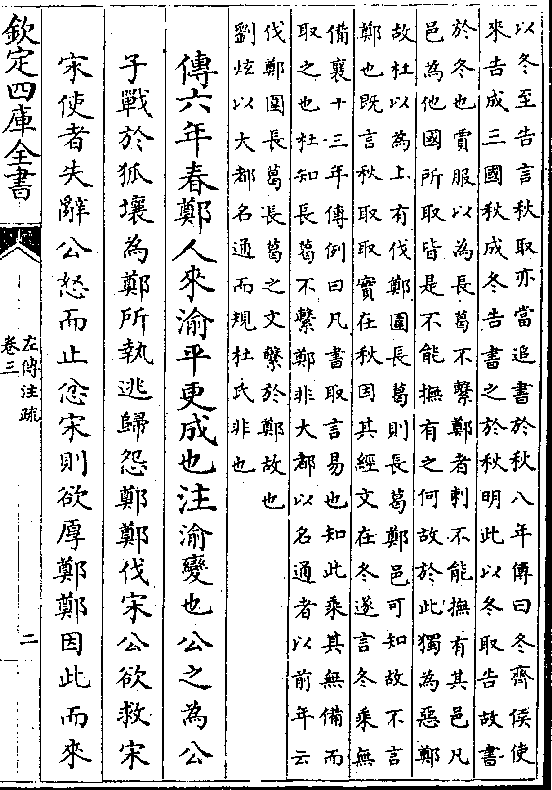 以冬至告言秋取亦當追書於秋八年傳曰冬齊侯使
來告成三國秋成冬告書之於秋明此以冬取告故書
於冬也賈服以為長葛不繫鄭者刺不能撫有其邑凡
邑為他國所取皆是不能撫有之何故於此獨為惡鄭
故杜以為上有伐鄭圍長葛則長葛鄭邑可知故不言
鄭也既言秋取取實在秋因其經文在冬遂言冬乘無
備襄十三年傳例曰凡書取言易也知此乘其無備而
取之也杜知長葛不繫鄭非大都以名通者以前年云
伐鄭圍長葛長葛之文繫於鄭故也
劉炫以大都名通而規杜氏非也
傳六年春鄭人來渝平更成也注渝變也公之為公
子戰於狐壤為鄭所執逃歸怨鄭鄭伐宋公欲救宋
宋使者失辭公怒而止忿宋則欲厚鄭鄭因此而來
欽定四庫全書
左傳注疏
卷三
二